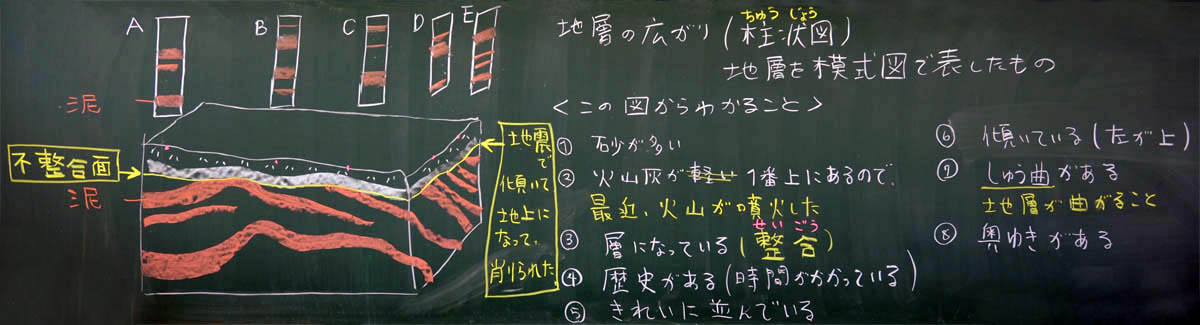 A
B
C
D
E
泥
不整合面
泥
地震
で
傾いて
地上に
なって、
削られた
地層の広がり(柱状図)
ちゅう じょう
地層を模式図で表したもの
<この図からわかること>
① 石砂が多い
② 火山灰が軽い1番上にあるので、
最近、火山が噴火した
③ 層になっている(整合)
せい ごう
④ 歴史がある(時間がかかっている)
⑤ きれいに並んでいる
⑥ 傾いている(左が上)
⑦ しゅう曲がある
地層が曲がること
⑧ 奥ゆきがある